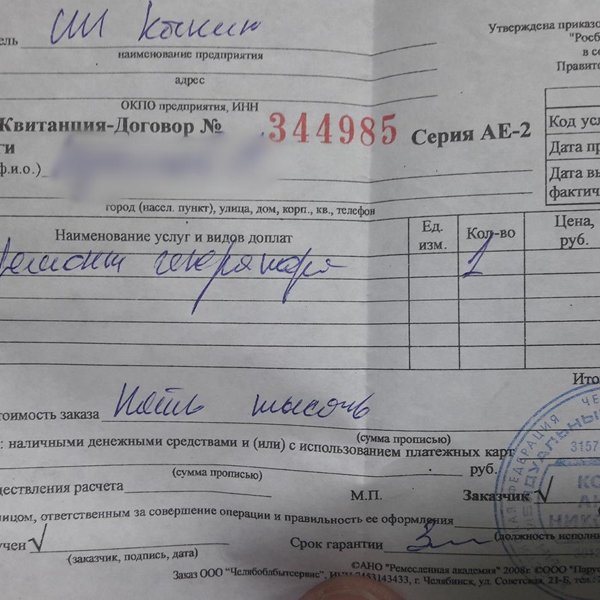 тель ИП Конин
Утверждена приказо
наименование предприятия
"Росб
в се
адрес
Правит
ОКПО предприятия, ИНН
Квитанция-Договор № 344985 Серия АЕ-2
Код усл
ги
Дата пр
ф.и.о.)
Дата вы
фактиче
город (насел. пункт), улица, дом, корп., кв., телефон
Наименование услуг и видов доплат
Ед. изм.
Кол-во
Цена, руб.
Ремонт генератора 1
Ито
стоимость заказа Пять тысячь
(сумма прописью)
: наличными денежными средствами и (или) с использованием платежных карт
руб.
(сумма прописью)
ществления расчета
М.П.
Заказчик
лицом, ответственным за совершение операции и правильность ее оформления
(должность исполни
учен
Срок гарантии 3м
(заказчик, подпись, дата)
©АНО "Ремесленная академия" 2008г. ©ООО "Парус
Заказ ООО "Челябоблбытсервис", ИНН 7453143433, г. Челябинск, ул. Советская, 21-Б, тел.
3157